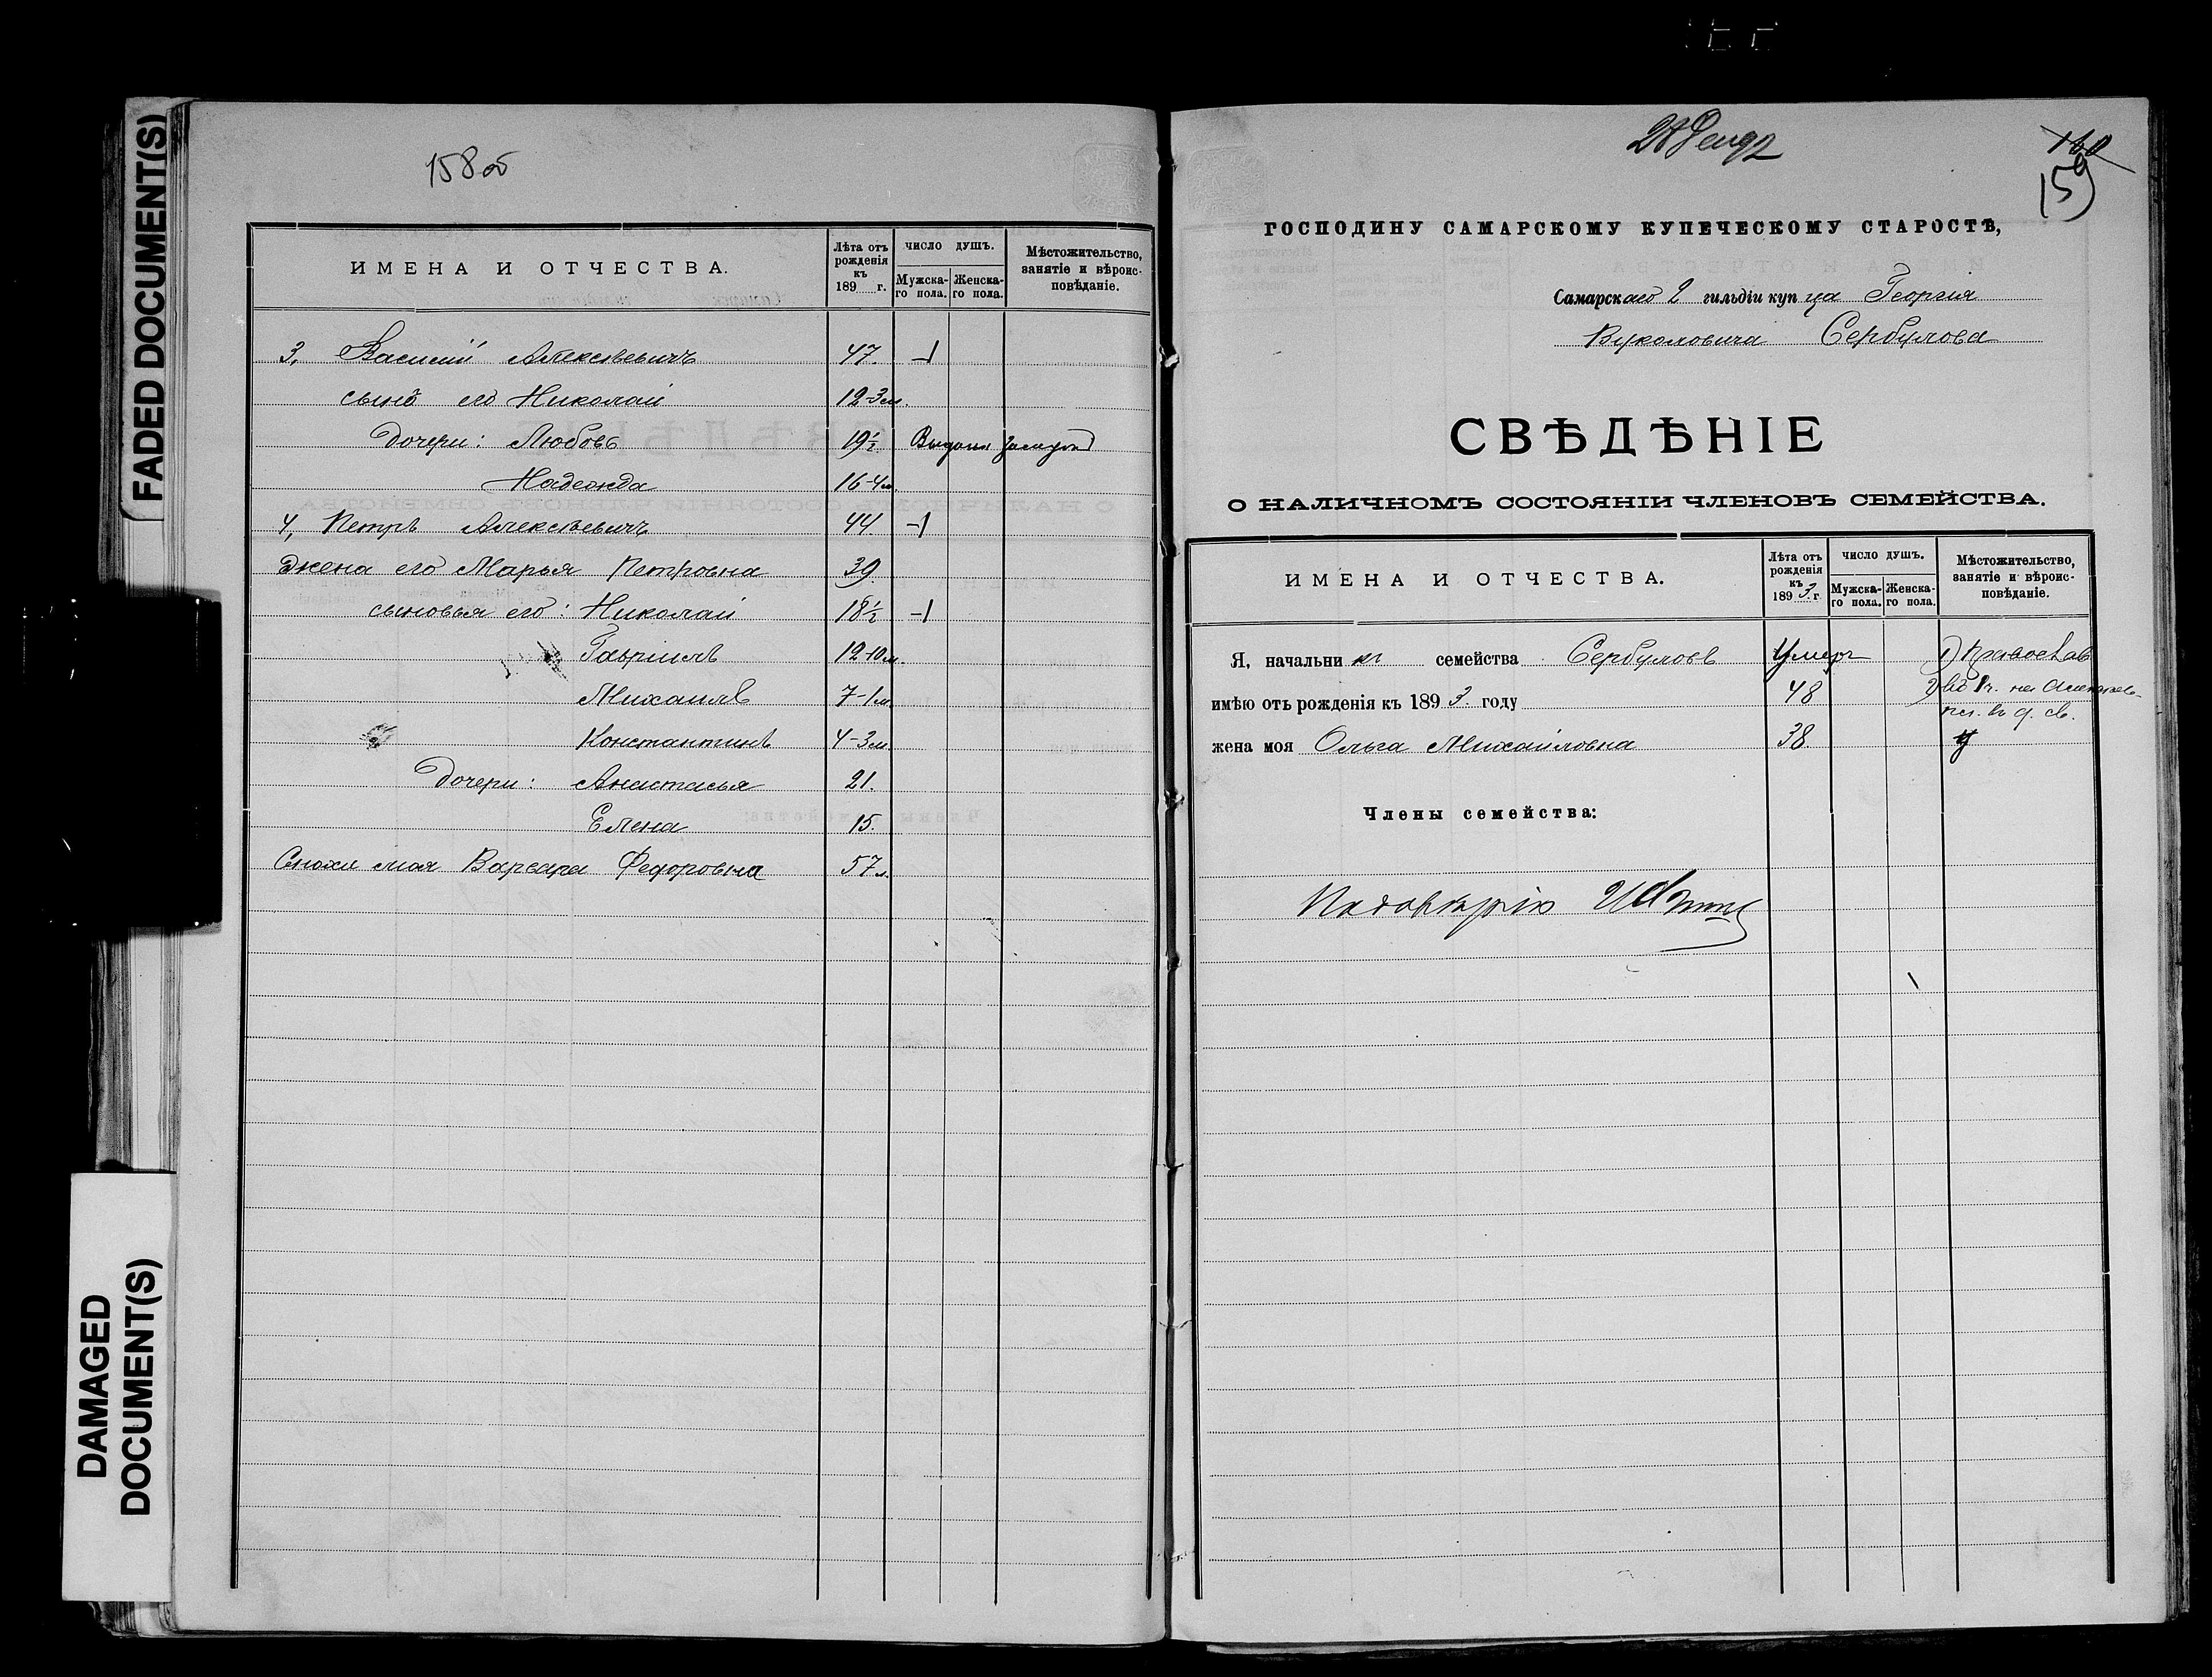 FADED DOCUMENT(S)
DAMAGED
DOCUMENT(S)
158об
ИМЕНА И ОТЧЕСТВА.
Лѣта отъ рожденія къ 189 г.
ЧИСЛО ДУШЪ.
Мужска-го пола.
Женска-го пола.
Мѣстожительство, занятіе и вѣроис-повѣданіе.
3, Василій Алексѣевичъ 47.
сынъ его Николай 12-3м.
Дочери: Любовь 19½ Выдана замужъ
Надежда 16-4м.
4, Петръ Алексѣевичъ 44.
Жена его Марья Петровна 39.
сыновья его: Николай 18½
Гавріилъ 12-10м.
Михаилъ 7-1м.
Константинъ 4-3м.
Дочери: Анастасья 21.
Елена 15.
Сноха моя Варвара Федоровна 57л.
160
159
ГОСПОДИНУ САМАРСКОМУ КУПЕЧЕСКОМУ СТАРОСТѢ,
Самарскаго 2 гильдіи купца Георгія
Вуколовича Сербулова
СВѢДѢНІЕ
О НАЛИЧНОМЪ СОСТОЯНІИ ЧЛЕНОВЪ СЕМЕЙСТВА.
ИМЕНА И ОТЧЕСТВА.
Лѣта отъ рожденія къ 1893 г.
ЧИСЛО ДУШЪ.
Мужска-го пола.
Женска-го пола.
Мѣстожительство, занятіе и вѣроис-повѣданіе.
Я, начальникъ семейства Сербуловъ Умеръ 1) Православ
имѣю отъ рожденія къ 1893. году 48
жена моя Ольга Михайловна 38.
Члены семейства: